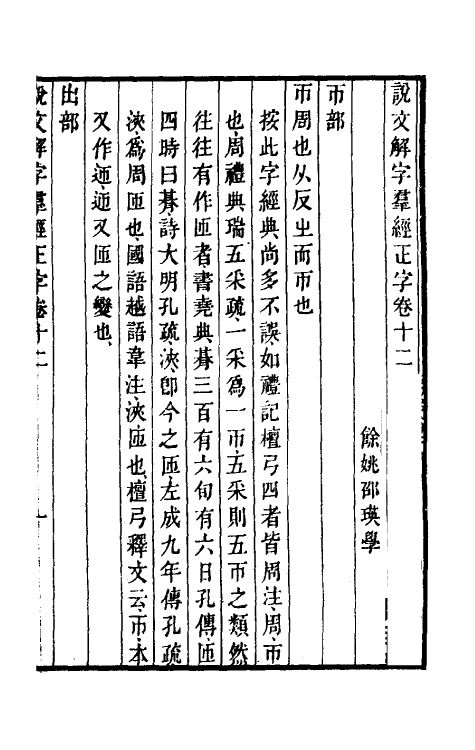 說文解字羣經正字卷十二
餘姚邵瑛學
帀部
帀周也从反㞢而帀也
按此字經典尚多不誤如禮記檀弓四者皆周注、周、帀
也、周禮典瑞五采疏、一采爲一帀、五采則五帀之類然
往往有作匝者、書堯典、朞三百有六旬有六日孔傳、匝
四時曰朞、詩大明孔疏、浹、卽今之匝、左成九年傳孔疏
浹爲周匝也、國語越語韋注、浹匝也、檀弓釋文云、帀、本
又作迊、迊又匝之變也、
出部
說文解字羣經正字卷十二